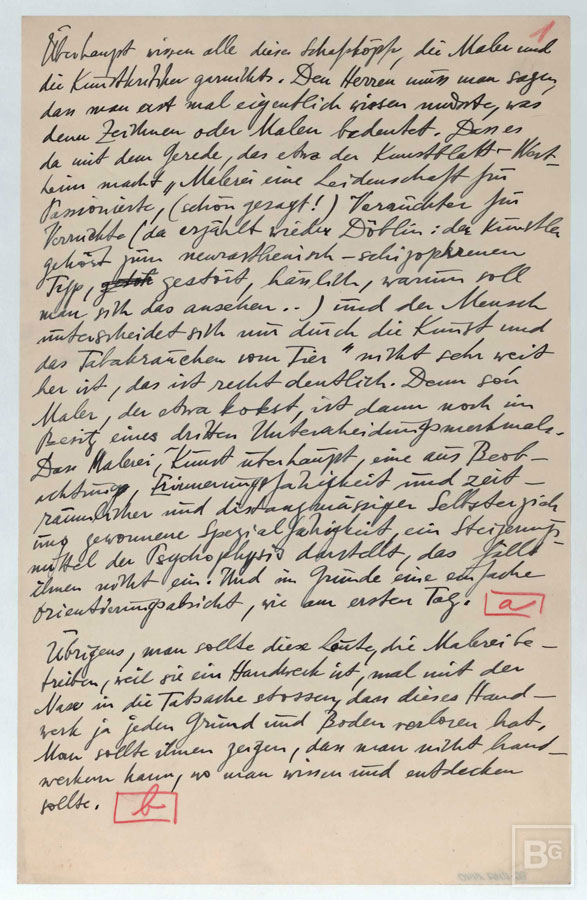 1
Überhaupt wissen alle diese Schafsköpfe, die Maler und
die Kunstkritiker garnichts. Den Herren muss man sagen,
dass man erst mal eigentlich wissen müsste, was
denn Zeichnen oder Malen bedeutet. Dass es
da mit dem Gerede, das etwa der Kunstblatt-West-
heim macht „Malerei eine Leidenschaft für
Passionierte, (schön gesagt!) Verrückter für
Verrückte (da erzählt wieder Döblin: der Künstler
gehört zum neurasthenisch-schizophrenen
Typ, gestört, hässlich, warum soll
man sich das ansehen..) und der Mensch
unterscheidet sich nur durch die Kunst und
das Tabakrauchen vom Tier" nicht sehr weit
her ist, das ist recht deutlich. Denn so'n
Maler, der etwa kokst, ist dann noch im
Besitz eines dritten Unterscheidungsmerkmals.
Dass Malerei, Kunst überhaupt, eine aus Beob-
achtung, Erinnerungsfähigkeit und zeit-
räumlicher und distanzmässiger Selbsterzieh
ung gewonnene Spezialfähigkeit, ein Steigerungs-
mittel der Psychophysis darstellt, das fällt
ihnen nicht ein. Und im Grunde eine einfache
Orientierungsabsicht, wie am ersten Tag. a
Übrigens, man sollte diese Leute, die Malerei be-
treiben, weil sie ein Handwerk ist, mal mit der
Nase in die Tatsache stossen, dass dieses Hand-
werk ja jeden Grund und Boden verloren hat.
Man sollte ihnen zeigen, dass man nicht hand-
werkern kann, wo man wissen und entdecken
sollte. b
BG